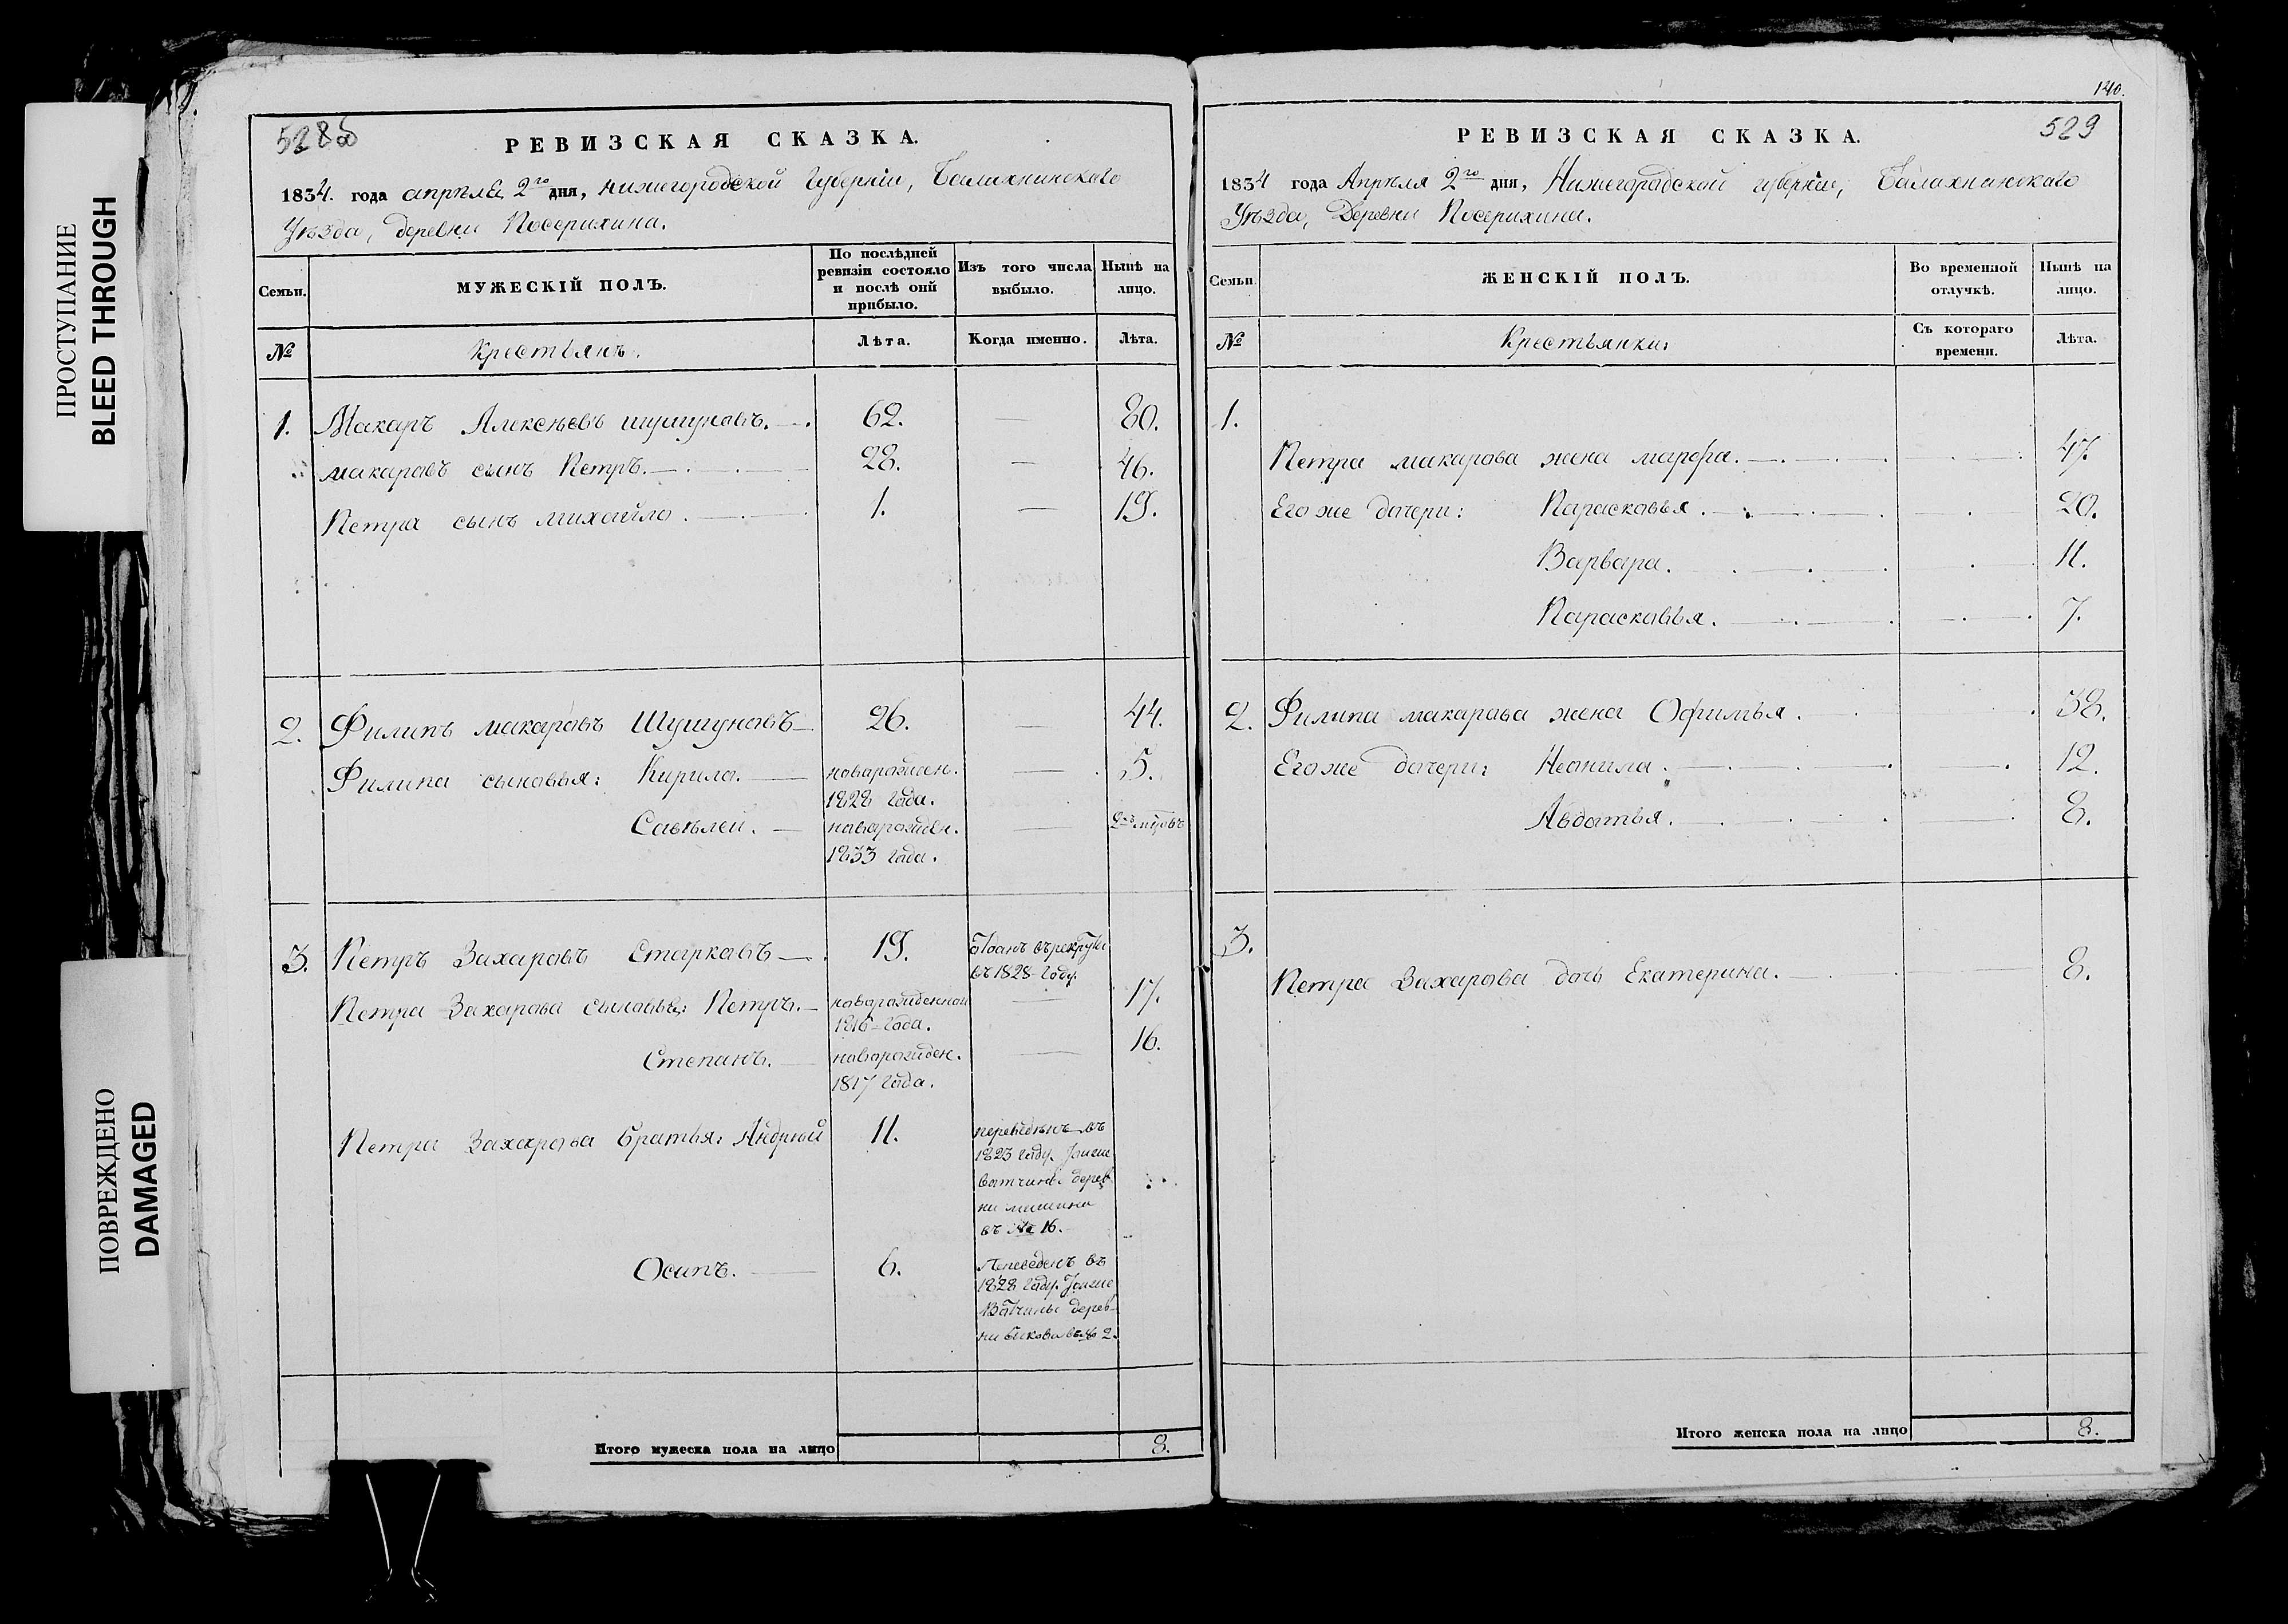 ПРОСТУПАНИЕ
BLEED THROUGH
ПОВРЕЖДЕНО
DAMAGED
528об
РЕВИЗСКАЯ СКАЗКА.
1834. года апрѣля 2го дня, нижегородской губерніи, Балахнинскаго
Уѣзда, деревни Посерихина.
Семьи.
МУЖЕСКІЙ ПОЛЪ.
По послѣдней
ревизіи состояло
и послѣ оній
прибыло.
Изъ того числа
выбыло.
Нынѣ на
лицо.
№
Крестьянъ.
Лѣта.
Когда именно.
Лѣта.
1. Макаръ Алексѣевъ шушуновъ. 62. — 80.
макаровъ сынъ Петръ. 28. — 46.
Петра сынъ михайло. 1. — 19.
2. Филипъ макаровъ Шушуновъ 26. — 44.
Филипа сыновья: Кирило. новарожден. — 5.
1828 года.
Савѣлей. новарожден. —
1833 года.
3. Петръ Захаровъ Старковъ 19. Отданъ въ рекруты
въ 1828 году.
Петра Захарова сыновья: Петръ. новарожденной — 17.
1816 года.
Степанъ. новарожден. — 16.
1817 года.
Петра Захарова братья: Андрей 11. переведенъ въ
1823 году
вотчины дерев
ни
въ № 16.
Осипъ. 6. Переведенъ въ
1828 году
Вотчины дерев-
ни въ № 2.
Итого мужеска пола на лицо 8.
140.
529
РЕВИЗСКАЯ СКАЗКА.
1834 года Апрѣля 2го дня, Нижегородской губерніи, Балахнинскаго
Уѣзда, Деревни Посерихини.
Семьи
ЖЕНСКІЙ ПОЛЪ.
Во временной
отлучкѣ.
Нынѣ на
лицо.
№
Крестьянки:
Съ котораго
времени.
Лѣта.
1.
Петра макарова жена марфа. 47.
Его же дочери: Парасковья. 20.
Варвара. 11.
Парасковья. 7.
2. Филипа макарова жена Офимья. 38.
Его же дочери: Неонила. 12.
Авдотья. 8.
3.
Петра Захарова дочь Екатерина. 8.
Итого женска пола на лицо 8.